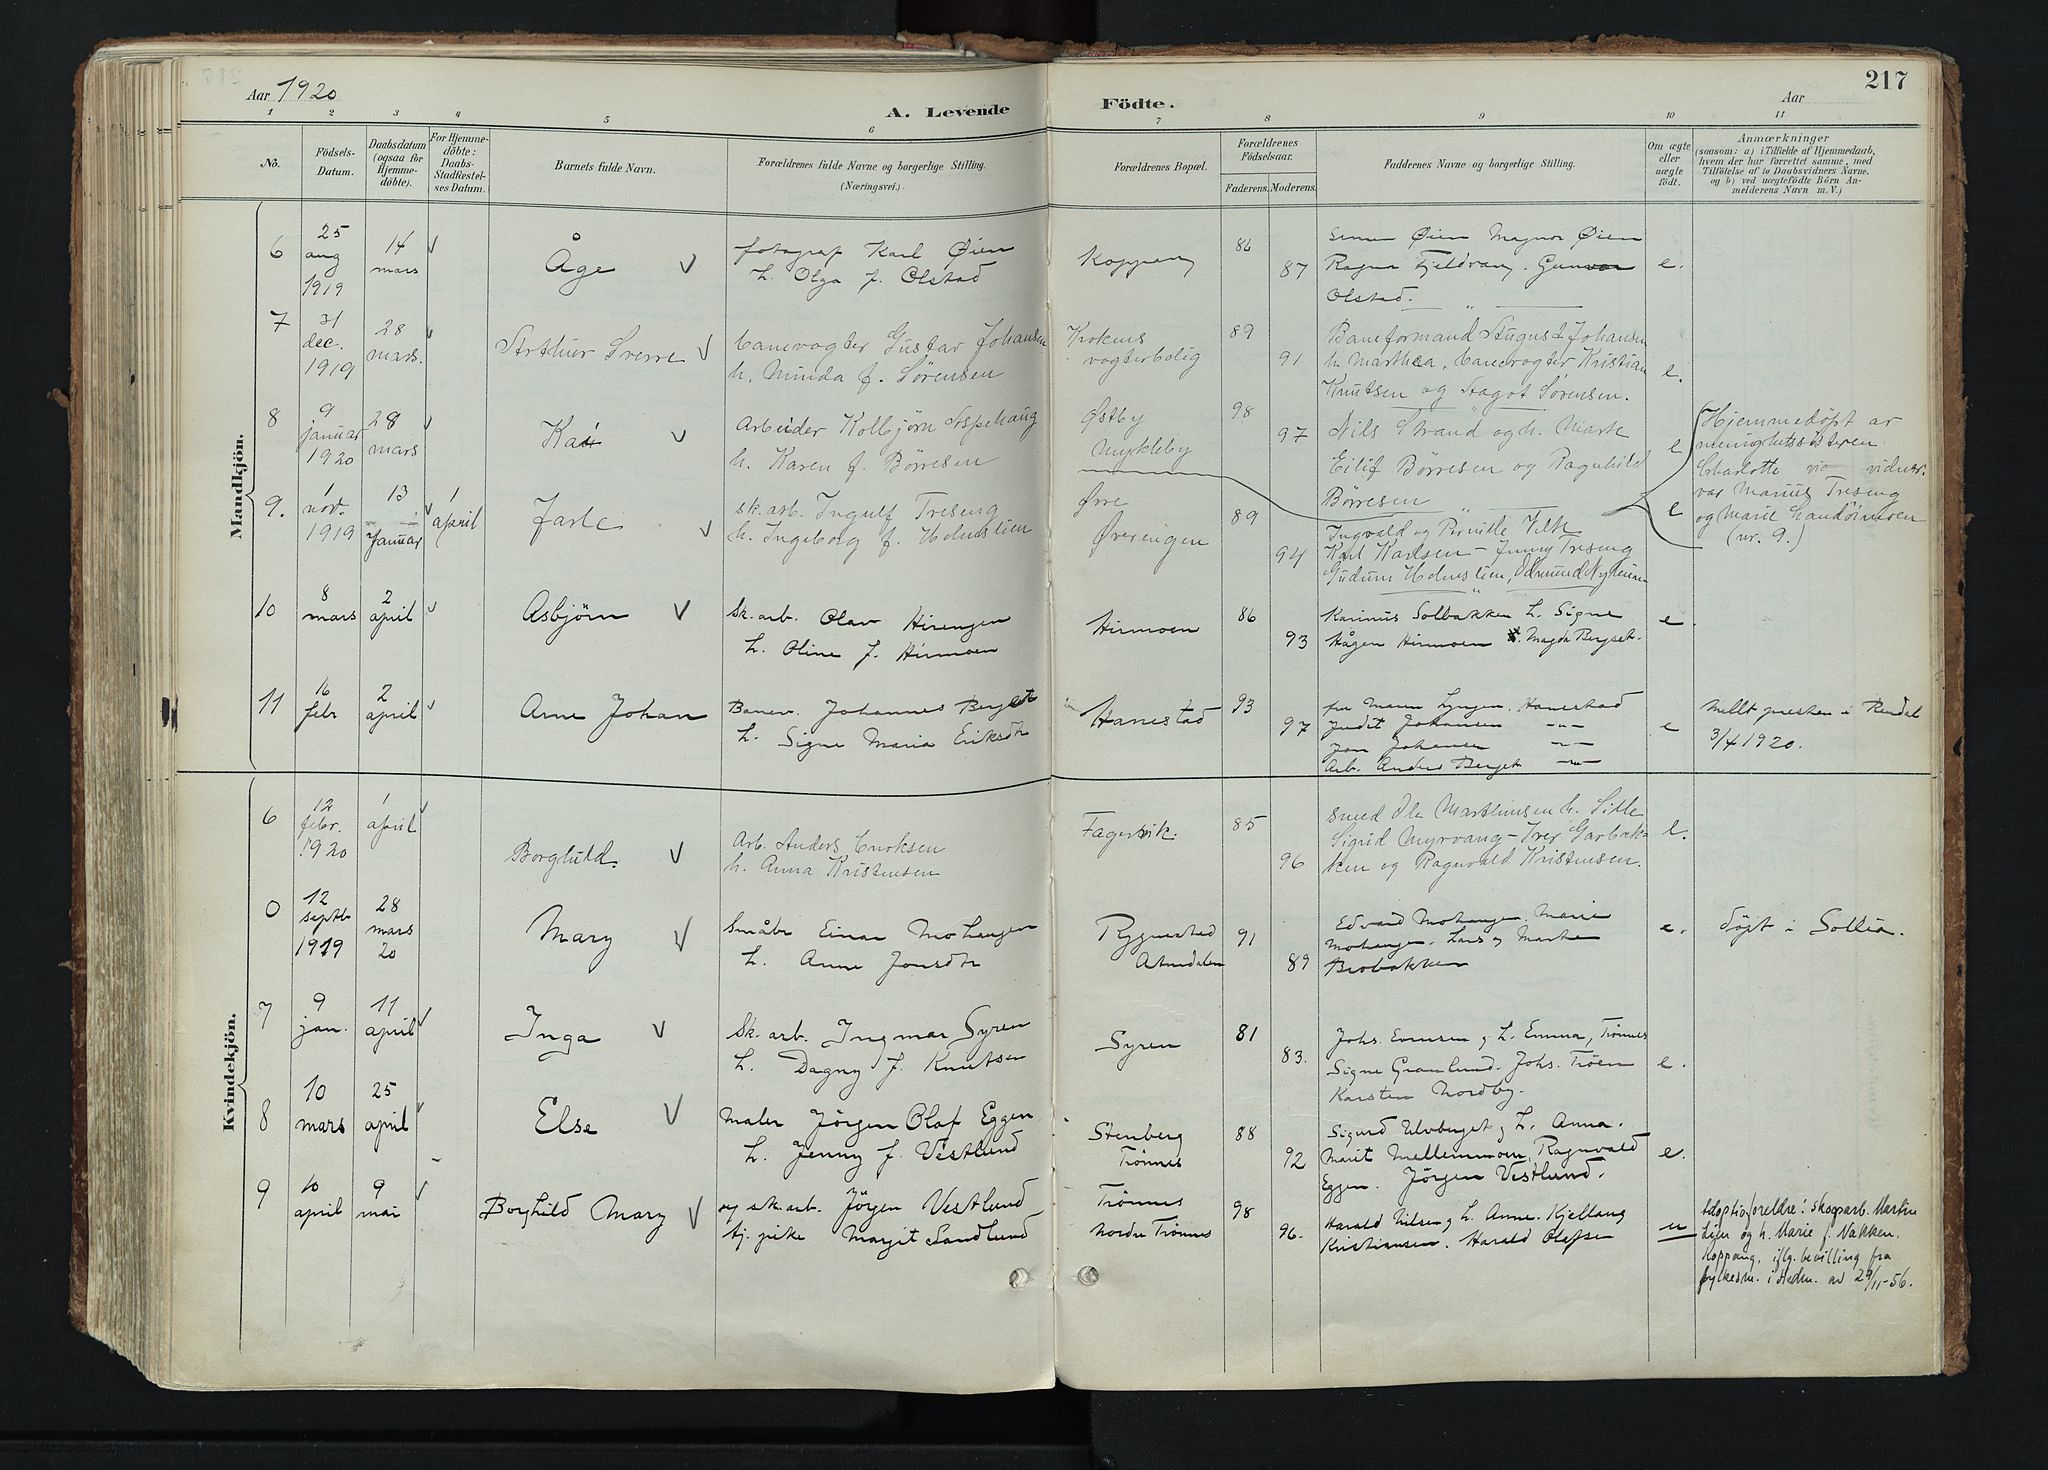 217
Aar 1920
A. Levende
Födte.
Aar
1 2 3 4 5 6 7 8 9 10 11
No.
Födsels-
Datum.
Daabsdatum
(ogsaa for
Hjemme-
döbte).
For Hjemme-
döbte:
Daabs-
Stadfæstel-
ses Datum.
Barnets fulde Navn.
Forældrenes fulde Navne og borgerlige Stilling.
(Næringsvei.)
Forældrenes Bopæl.
Forældrenes
Födselsaar.
Faderens.
Moderens.
Faddernes Navne og borgerlige Stilling.
Om ægte
eller
uægte
födt.
Anmærkninger
(saasom: a) i Tilfælde af Hjemmedaab,
hvem der har forrettet samme, med
Tilföielse af to Daabsvidners Navne.
og b) ved uægtefödte Börn An-
melderens Navn m. V.)
Mandkjön.
6
25
aug
1919
14
mars
Åge
fotograf Karl Øien
h. Olga f. Olstad
Koppang
86
87
Øien Magnor Øien
Ragna Fjeldvang. Gunvor
Olstad.
e.
7
31
dec.
1919
28
mars.
Arthur Sverre
banevogter Gustav Johansen
h. Minda f. Sørensen
Krokens
vogterbolig
89
91
Baneformand August Johansen
h. Marthea, banevogter Kristian
Knutsen og Dagot Sørensen.
e.
8
9
januar
1920
28
mars
Kai
Arbeider Kolbjørn Aspehaug
h. Karen f. Børresen
Østby
Mykleby
98
97
Nils Strand og h. Marte
Eilif Børresen og Ragnhild
Børresen
e
9.
1
nov.
1919
13
Januar
1
april
Jarle
sk.arb. Ingulf Treseng
h. Ingeborg f. Holmstien
Øvre
Øverengen
89
94
Ingvald og Pernille Vilk
Karl Karlsen - Jenny Treseng
Gudrun Holmstien, Odmund Nyheim
e
Hjemmedøpt av
menighetssøsteren
Charlotte Vie vidner
var Marius Treseng
og Marie Sandsimoen
(nr. 9.)
10
8
mars
2
april
Asbjörn
Sk. arb. Olav Hirengen
h. Oline f. Hirmoen
Hirmoen
86
93
Karinus Solbakken h. Signe
Hågen Hirmoen Magda Bergset.
e.
11
16
febr
2
april
Arne Johan
Banev. Johannes Berget
h. Signe Maria Eriksdtr
Hanestad
93
97
fru Maren Lyngen, Hanestad
Judit Johansen —"—
Jon Johansen —"—
Arb. Anders Berget —"—
e
Meldt presten i Rendal
3/4 1920.
Kvindekjön.
6
12
febr.
1920
1
april
Borghild
Arb. Anders Enoksen
h. Anna Kristensen
Fagervik.
85
96
smed Ole Marthinsen h. Sille
Sigrid Myrvang - Iver Garbak-
ken og Ragnvald Kristensen.
e.
0
12
septbr
1919
28
mars
20
Mary
Småbr Einar Mohangen
h. Anne Jonsdtr
Rygnestad
Atnedalen
91
89
Edvard Mohangen, Marie
Mohangen. Lars og Marte
Brobakken
e.
døpt i Sollia.
7
9
jan.
11
april
Inga
Sk. arb. Ingmar Syren
h. Dagny f. Knutsen
Syren
81
83.
Johs. Evensen og h. Emma, Trønnes
Signe Granlund. Johs. Trøen
Karsten Nordby.
e.
8
10
mars
25
april
Else
maler Jørgen Olaf Eggen
h. Jenny f. Vestlund
Stenberg
Trønnes
88
92
Sigurd Ulvberget og h. Anna.
Marit Mellemmoen, Ragnvald
Eggen. Jørgen Vestlund.
e.
9
10
april
9
mai
Borghild Mary
og sk.arb. Jörgen Vestlund
tj. pike Margit Sandlund
Trønnes
Nordre Trønnes
98
96.
Harald Nilsen og h. Anne. Kjellaug
Kristiansen. Harald Olafsen
u
Adoptivforeldre: skogsarb. Martin
Lien og h. Marie f. Nakken,
Koppang, iflg. bevilling fra
fylkesm. i Hedm. av 29/11-56.